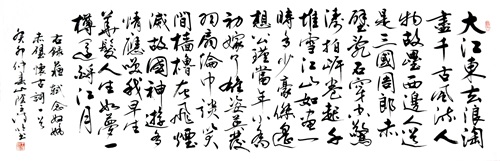 大江東去浪淘
盡千古風流人
物故壘西邊人道
是三國周郎赤
壁亂石穿空驚
濤拍岸卷起千
堆雪江山如畫一
時多少豪傑遙
想公瑾當年小喬
初嫁了雄姿英發
羽扇綸巾談笑
間檣櫓灰飛煙
滅故國神遊多
情應笑我早生
華髮人生如夢一
樽還酹江月
右錄蘇軾念奴嬌
赤壁懷古詞一首